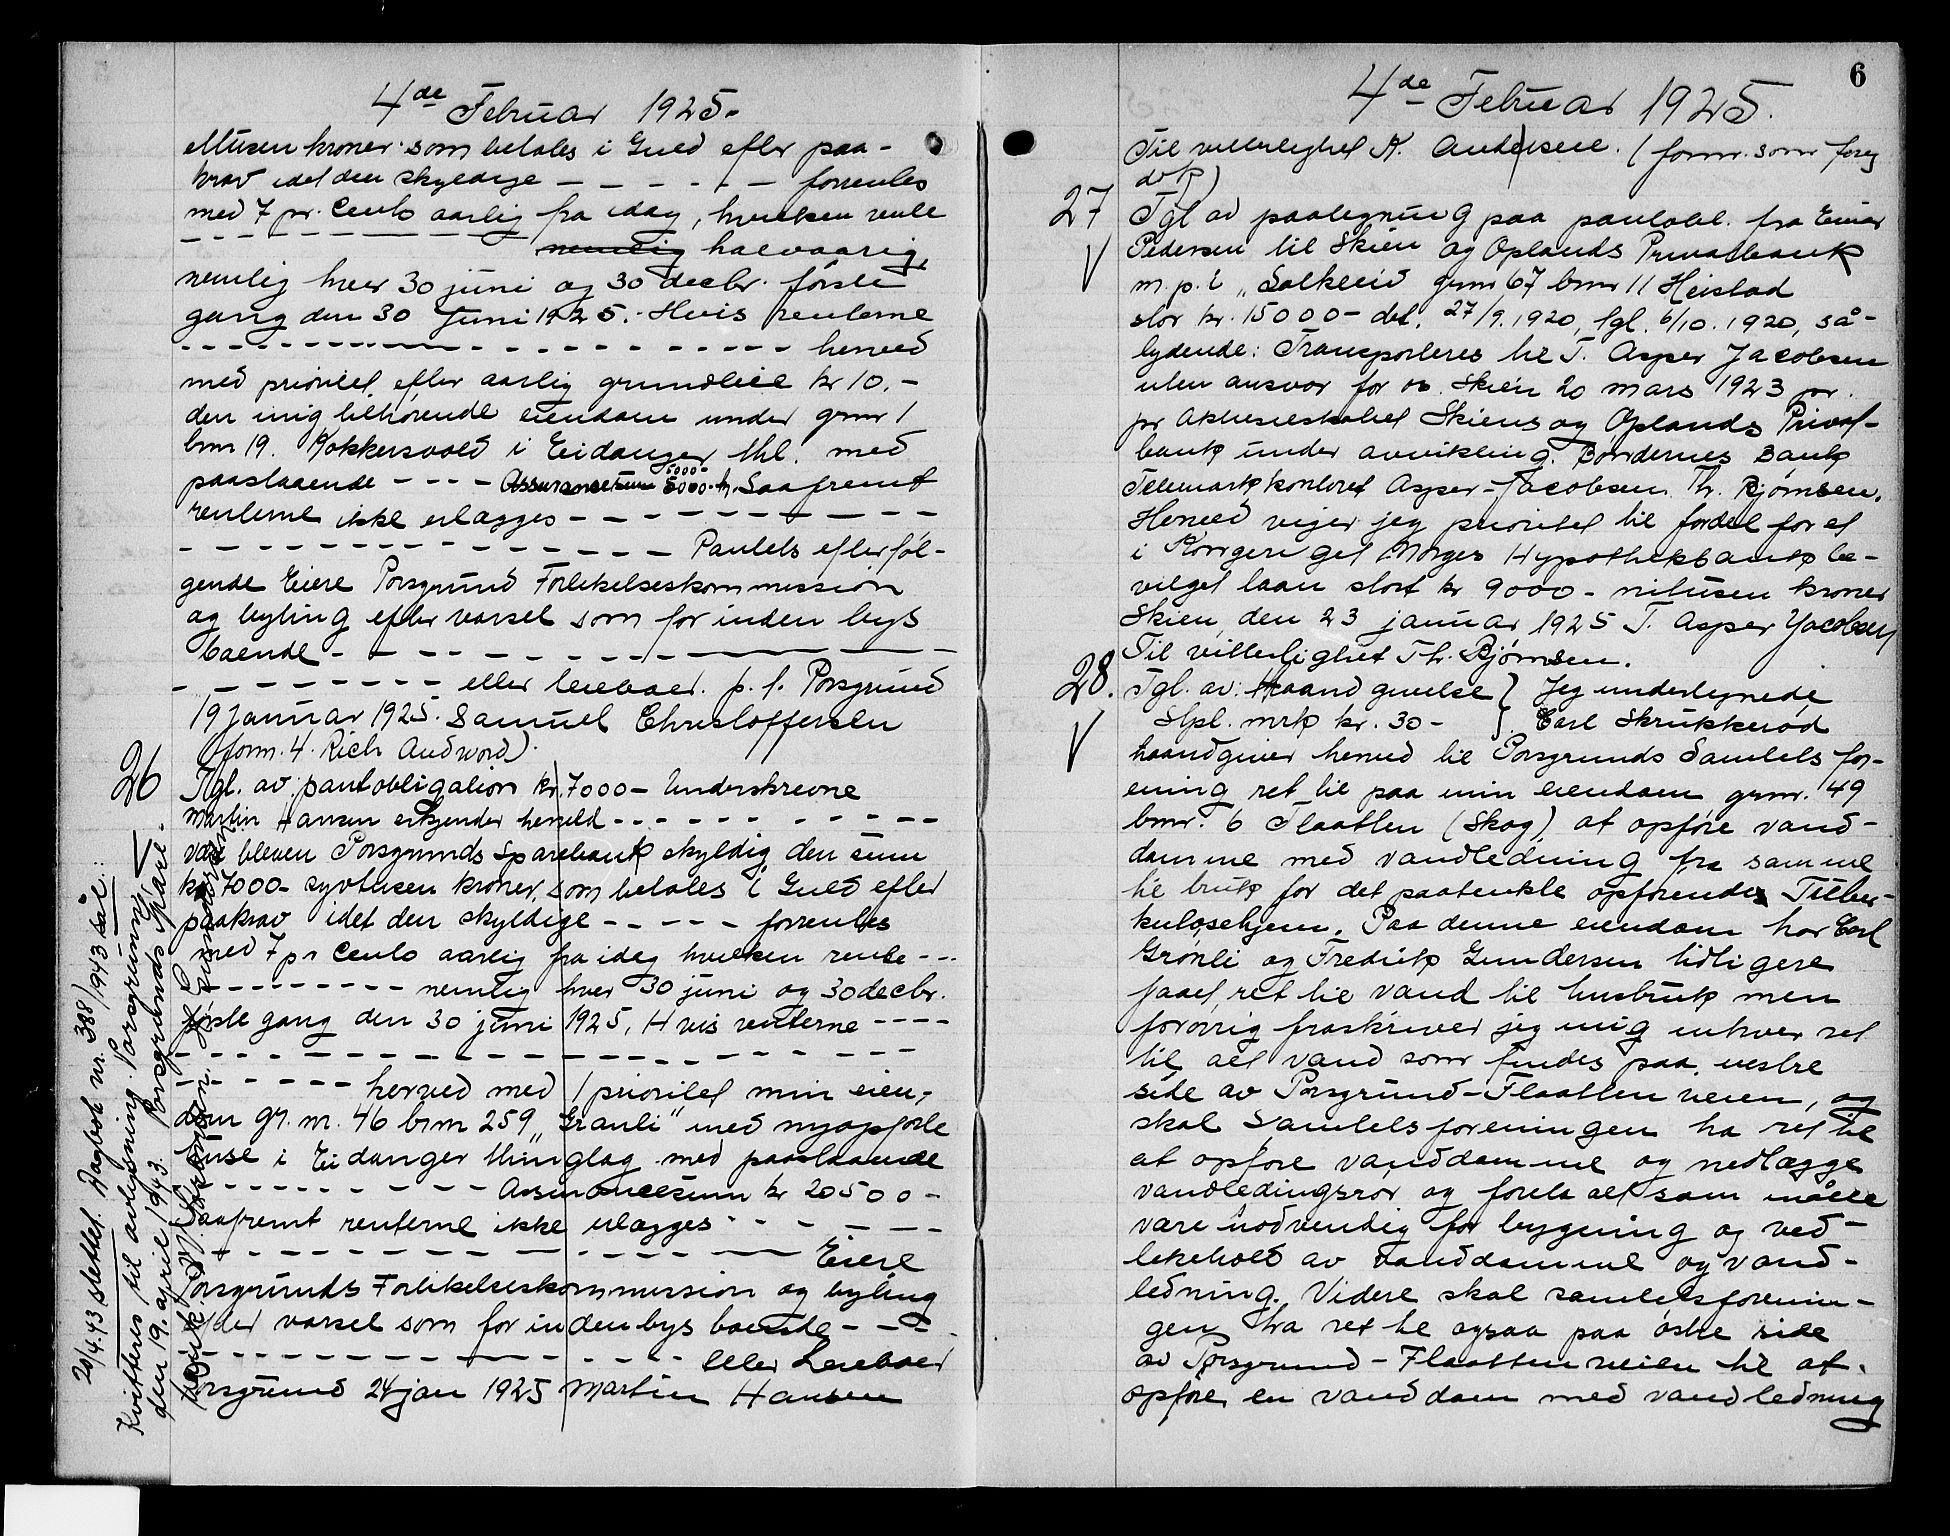 4de Februar 1925.
ettusen kroner som betales i Guld efter paa-
krav idet den skyldige - - - - - - forrentes
med 7 pr. Cento aarlig fra idag, hvilken rente
- - - - - - - - nemlig halvaarig,
nemlig hver 30 juni og 30 decbr. første
gang den 30 Juni 1925. Hvis renterne
- - - - - - - - - - - - - - herved
med prioritet efter aarlig grundleie kr 10.-
den mig tilhørende eiendom under gnr 1
bnr 19. Kokkersvold i Eidanger thl. med
paastaaende - - - - Assurancesum 5000 kr. Saafremt
renterne ikke erlægges - - - - - - - - -
- - - - - - - - - - - - - Pantets efterføl-
gende Eiere Porsgrund Forlikelseskommission
og bytingg efter varsel som for inden bys
boende - - - - - - - - - - - - -
- - - - - - - - - eller leieboer. p.t. Porsgrund
19 januar 1925. Samuel Christoffersen
(form. 4. Rich Andword).
26 Tgl. av pantobligation kr. 7000- Underskrevne
Martin Hansen erkjender herved - - - - - - - -
være bleven Porsgrunds Sparebank skyldig den sum
kr. 7000- syvtusen kroner, som betales i Guld efter
paakrav idet den skyldige - - - - - forrentes
med 7 pr Cento aarlig fra idag hvilken rente - - -
- - - - - - - - - nemlig hver 30 juni og 30 decbr.
første gang den 30 juni 1925, Hvis renterne - - - -
- - - - - - - - - - - - - - - - - -
- - - - - - herved med 1 prioritet min eien-
dom gr. nr. 46 bnr 259 „Granli" med nyopførte
huse i Eidanger thinglag med paastaaende
- - - - - - - - - Assurancesum kr 20500-
Saafremt renterne ikke erlægges - - - - - -
- - - - - - - - - - - - - - - Eiere
Porsgrunds Forlikelseskommission og byting
efter varsel som for inden bys boende - - - -
- - - - - - - - - - - - - eller Leieboer
Porsgrund 24 jan 1925 Martin Hansen
20/4.43 slettet. Dagbok nr. 388/1943 så:
Kvitteres til avlysning. Porsgrunn,
den 19. april 1943. Porsgrunds Spare-
6
4de Februar 1925.
Til vitterlighet K. Andersen. (form. som foreg
dok)
27 Tgl av paategning paa pantobl. fra Einar
V Pedersen til Skien og Oplands Privatbank
m. p. i „Solkleid gnr 67 bnr 11 Heistad
stor kr. 15000- dat. 27/9.1920, tgl. 6/10.1920, så-
lydende: Transporteres til T. Asper Jacobsen
uten ansvar for os. Skien 20 mars 1923 pr.
pr Aktieselskabet Skiens og Oplands Privat-
bank under avvikling. Bøndernes Bank
Telemarkkontoret Asper-Jacobsen. Th. Bjørnsen.
Herved viger jeg prioritet til fordel for et
i Kongeriget Norges Hypothekbank be-
vilget laan stort kr 9000- nitusen kroner
Skien, den 23 januar 1925 T. Asper Jacobsen
Til vitterlighet Th. Bjørnsen.
28. Tgl. av: Haandgivelse } Jeg undertegnede
V Stpl. mrk kr. 30- } Carl Skrukkerød
haandgiver herved til Porsgrunds Sanitetsfor-
ening ret til paa min eiendom gnr. 49
bnr. 6 Flaatten (Skog) at opføre vand-
damme med vandledning fra samme
til bruk for det paatenkte opførendes Tuber-
kulosehjem. Paa denne eiendom har Carl
Grønli og Fredrik Gundersen tidligere
faaet ret til vand til husbruk men
forøvrig fraskriver jeg mig enhver ret
til alt vand som findes paa vestre
side av Porsgrund-Flaatten veien, og
skal Sanitetsforeningen ha ret til
at opføre vanddamme og nedlægge
vandledingsrør og foreta alt som måtte
være nødvendig for bygning og ved-
likehold av vanddamme og vand-
ledning. Videre skal sanitetsforenin-
gen ha ret til ogsaa paa østre side
av Porsgrund-Flaatten veien til at
opføre en vanddam med vandledning